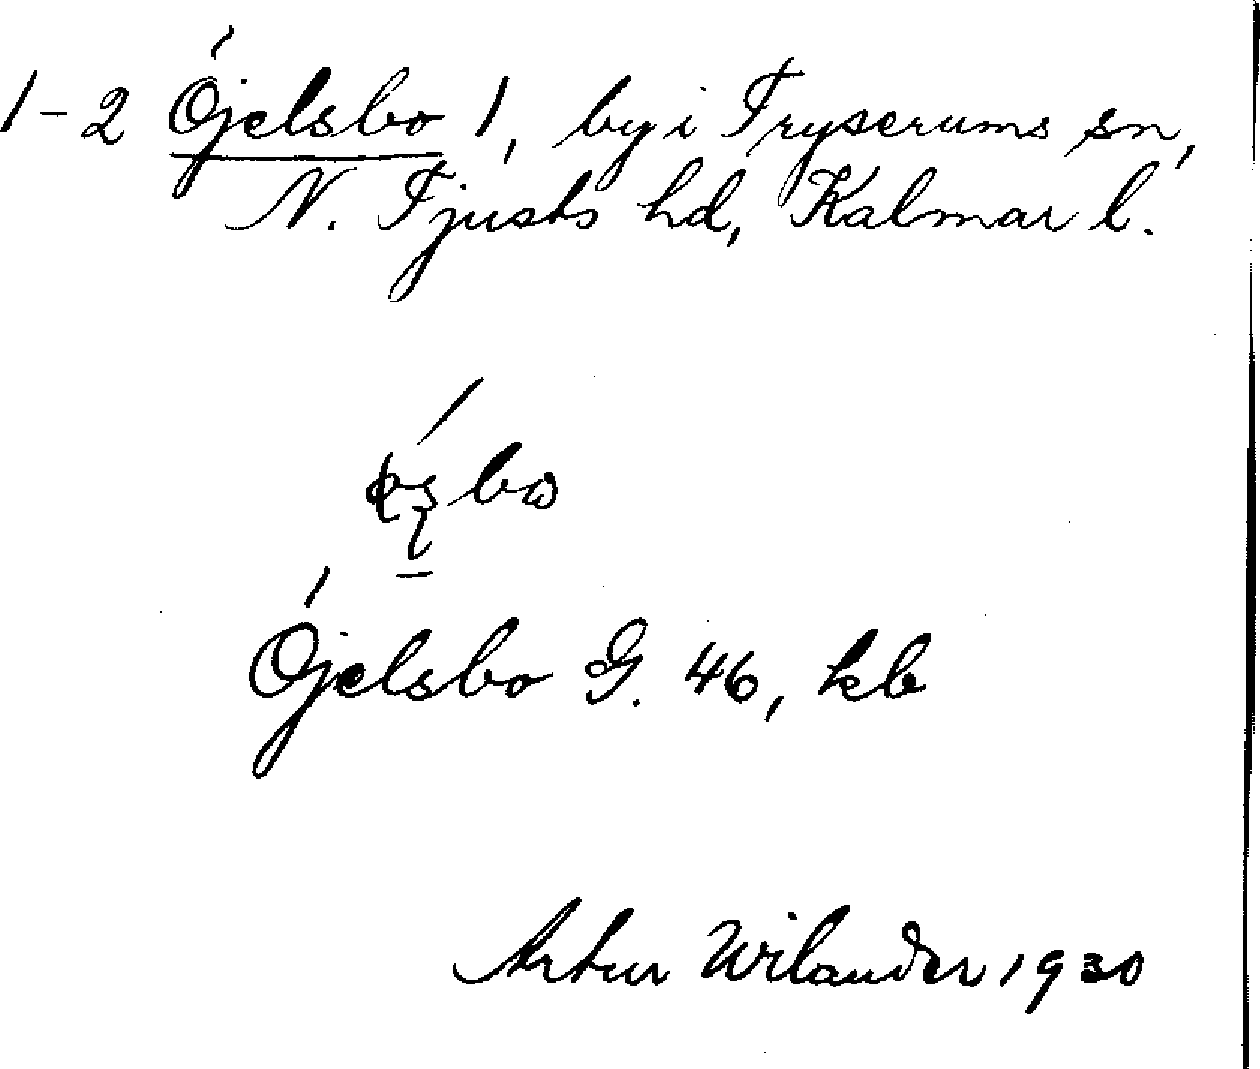 1-2 Öjelsbo 1, by i Tryserums sn,
N. Tjusts hd, Kalmar l.
Öjelsbo G. 46, kb
Artur Wilander 1930